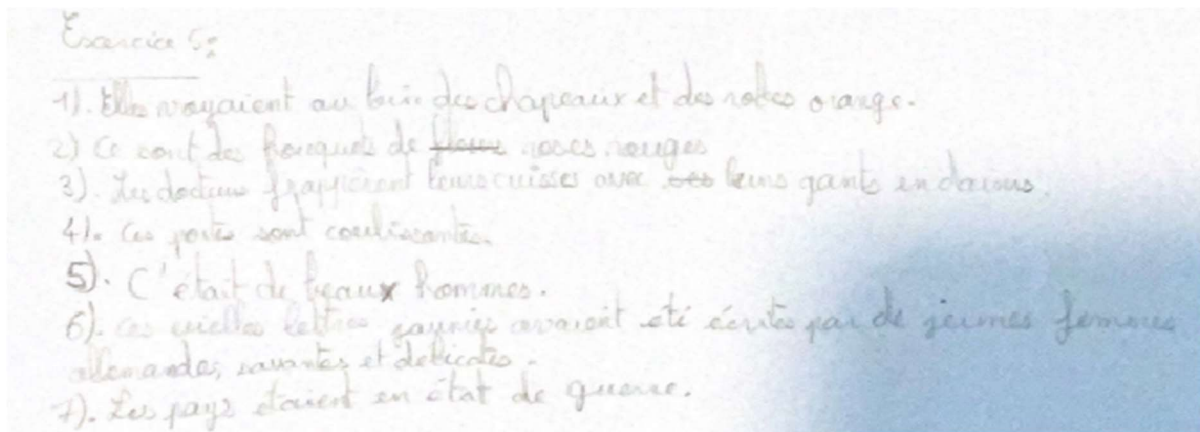 Exercice 5:
1). Elles voyaient au loin des chapeaux et des robes orange.
2) Ce sont des bouquets de fleurs roses rouges
3). Les docteurs frappèrent leurs cuisses avec ses leurs gants en daims.
4). Ces portes sont coulissantes.
5). C'était de beaux hommes.
6). Ces vieilles lettres jaunies avaient été écrites par de jeunes femmes
allemandes, savantes et délicates.
7). Les pays étaient en état de guerre.